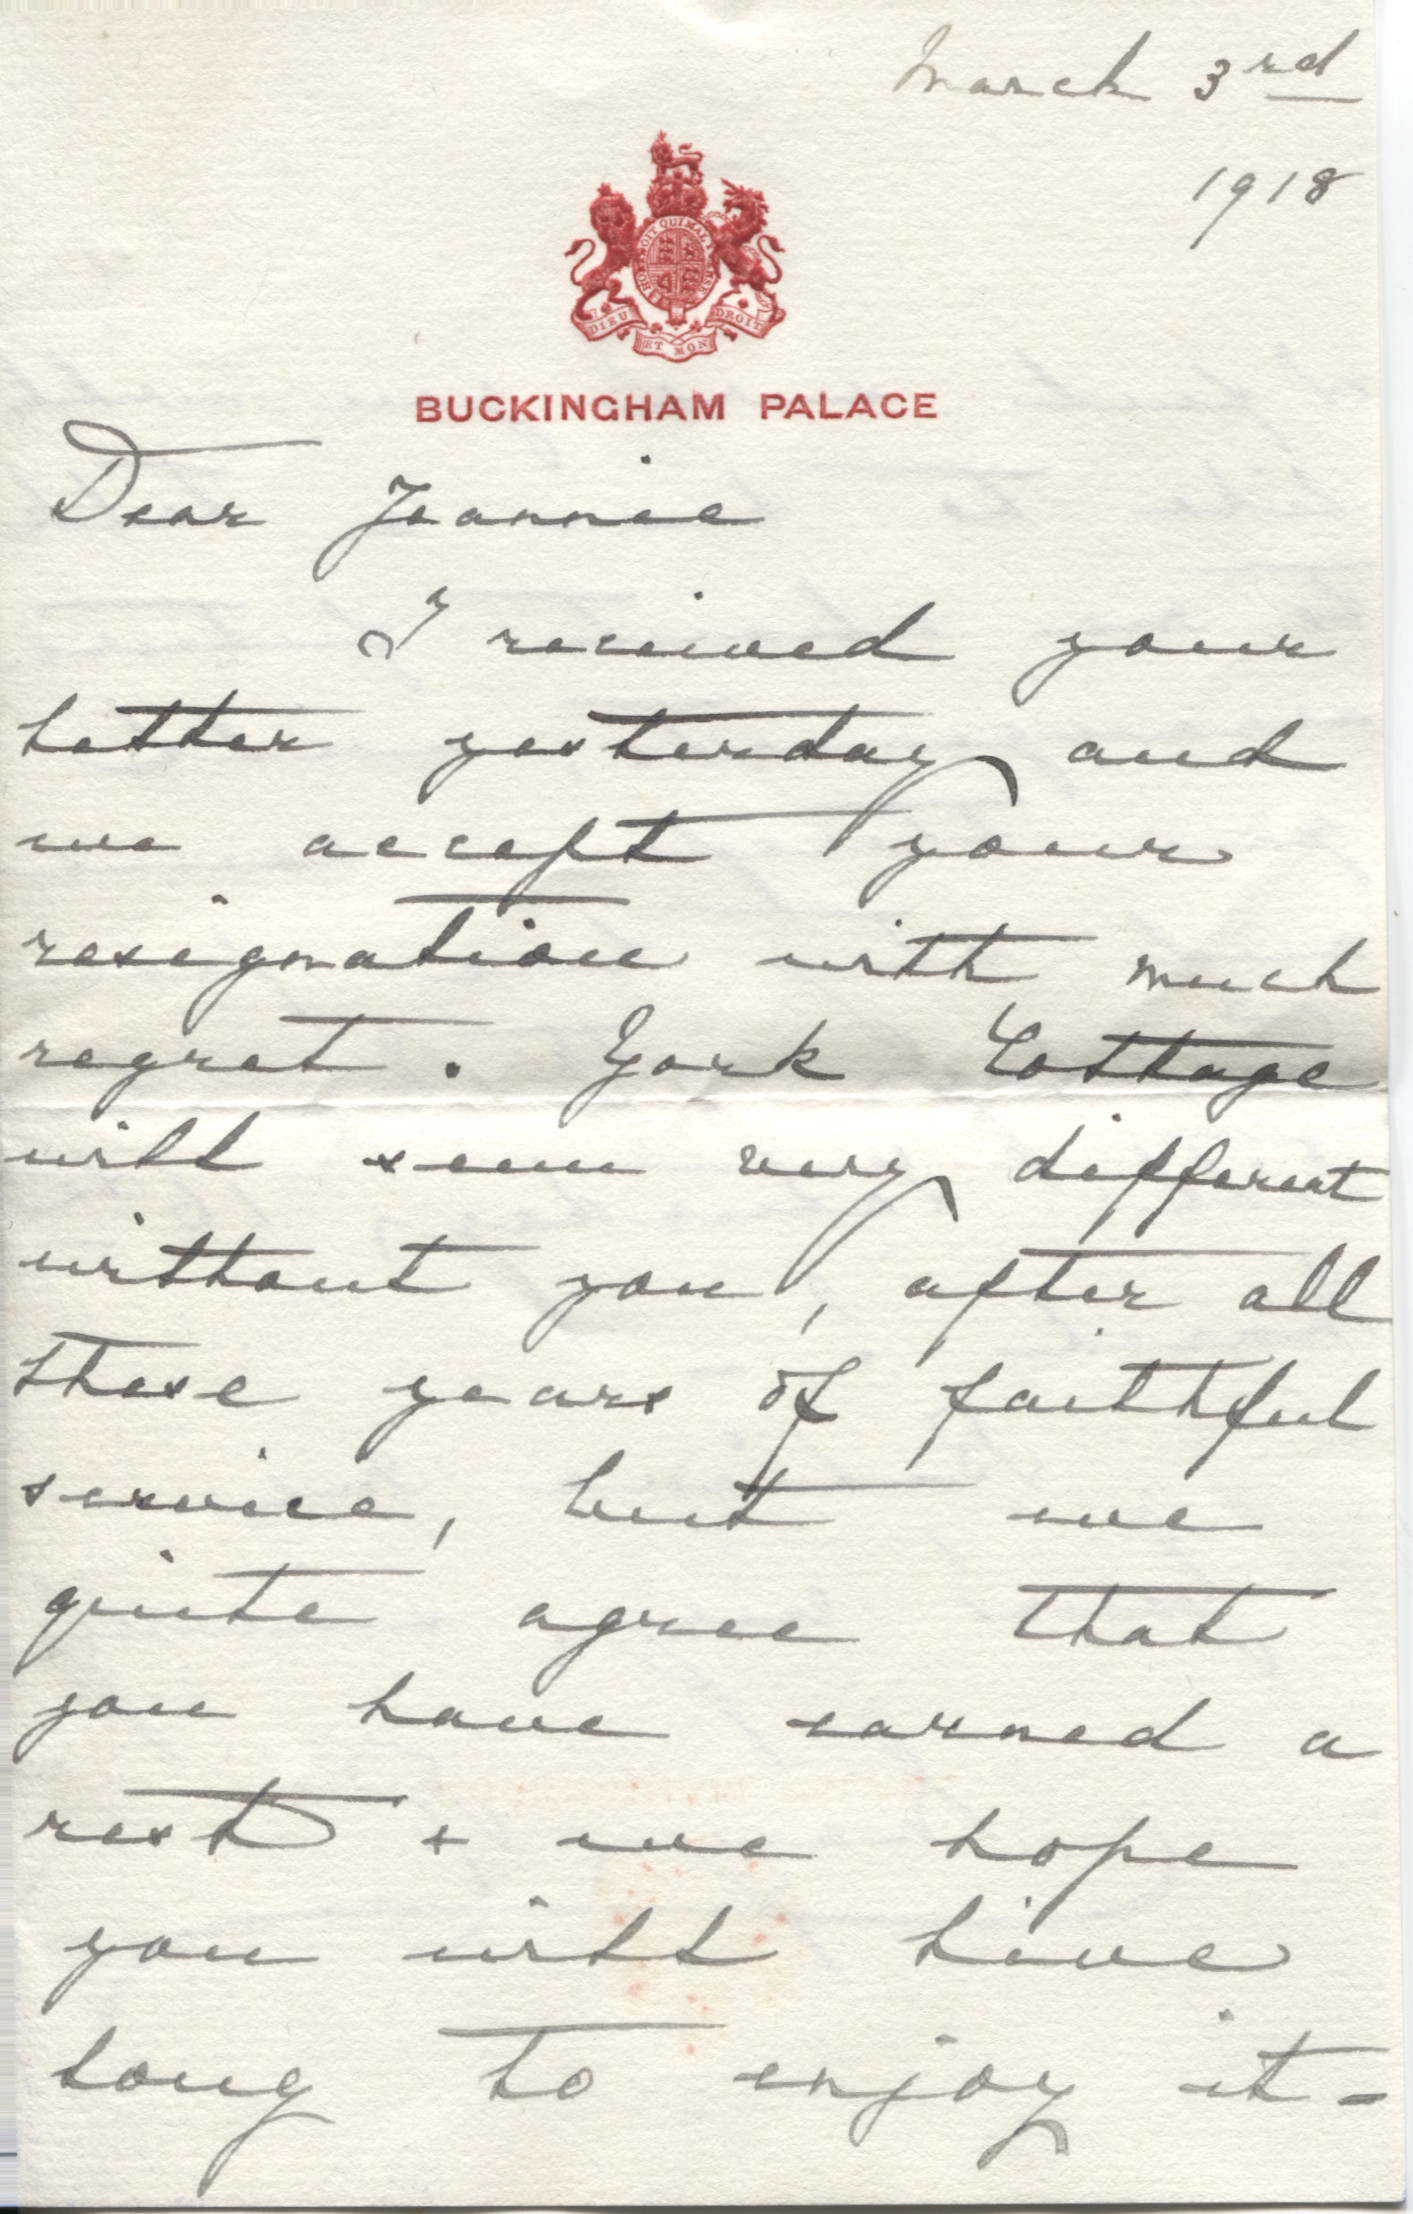 March 3rd
1918
HONI SOIT QUI MAL Y PENSE
DIEU ET MON DROIT
BUCKINGHAM PALACE
Dear Jeannie
I received your
letter yesterday and
we accept your
resignation with much
regret. York Cottage
will seem very different
without you, after all
these years of faithful
service, but we
quite agree that
you have earned a
rest + we hope
you will live
long to enjoy it -